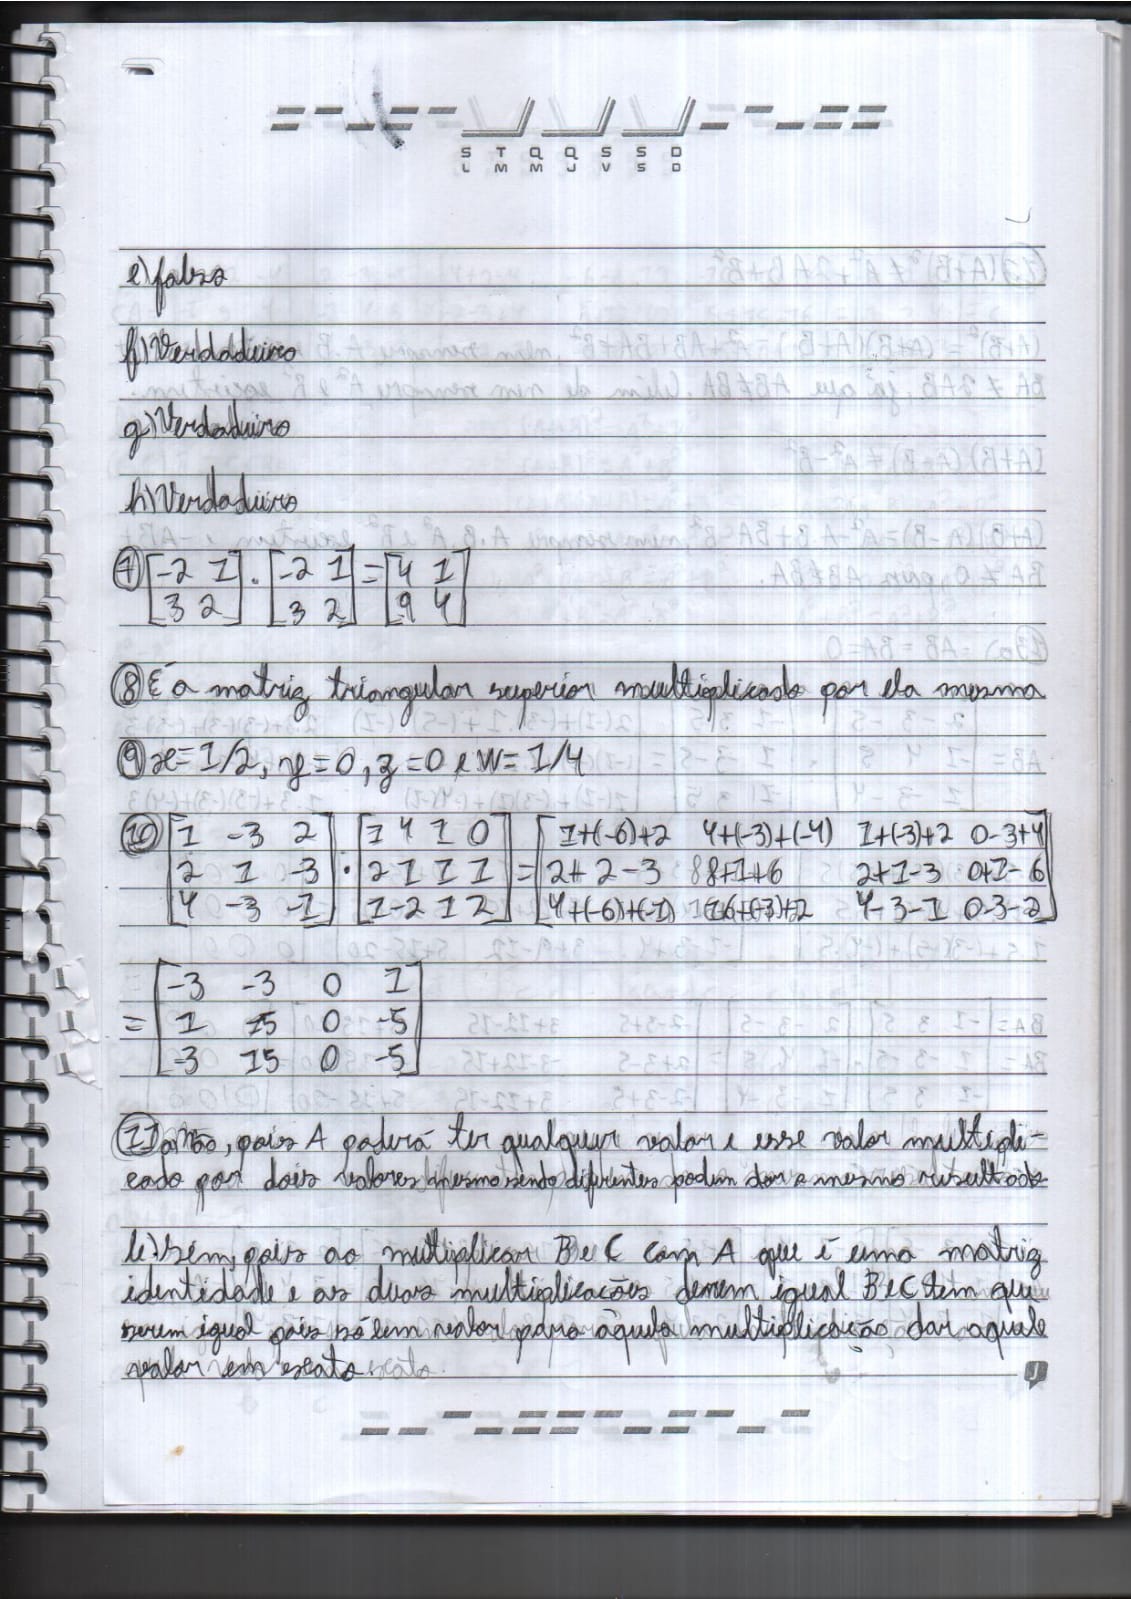 S T Q Q S S D
L M M J V S D
e) falso
f) Verdadeiro
g) Verdadeiro
h) Verdadeiro
7) [-2 1] . [-2 1] = [4 1]
[3 2] [3 2] [9 4]
8) É a matriz triangular superior multiplicado por ela mesma
9) x = 1/2, y = 0, z = 0 e W = 1/4
10) [1 -3 2] . [1 4 1 0] = [1+(-6)+2 4+(-3)+(-4) 1+(-3)+2 0-3+4]
[2 1 -3] [2 1 1 1] [2+2-3 8+1+6 2+1-3 0+1-6]
[4 -3 -1] [1 -2 1 2] [4+(-6)+(-1) 16+(-3)+2 4-3-1 0-3-2]
[-3 -3 0 1]
= [1 15 0 -5]
[-3 15 0 -5]
11) a) Não, pois A poderá ter qualquer valor e esse valor multipli-
cado por dois valores mesmo sendo diferentes podem dar o mesmo resultado
b) Sim, pois ao multiplicar B e C com A que é uma matriz
identidade e as duas multiplicações derem igual B e C tem que
serem igual pois só um valor para aquela multiplicação dar aquele
valor em exato